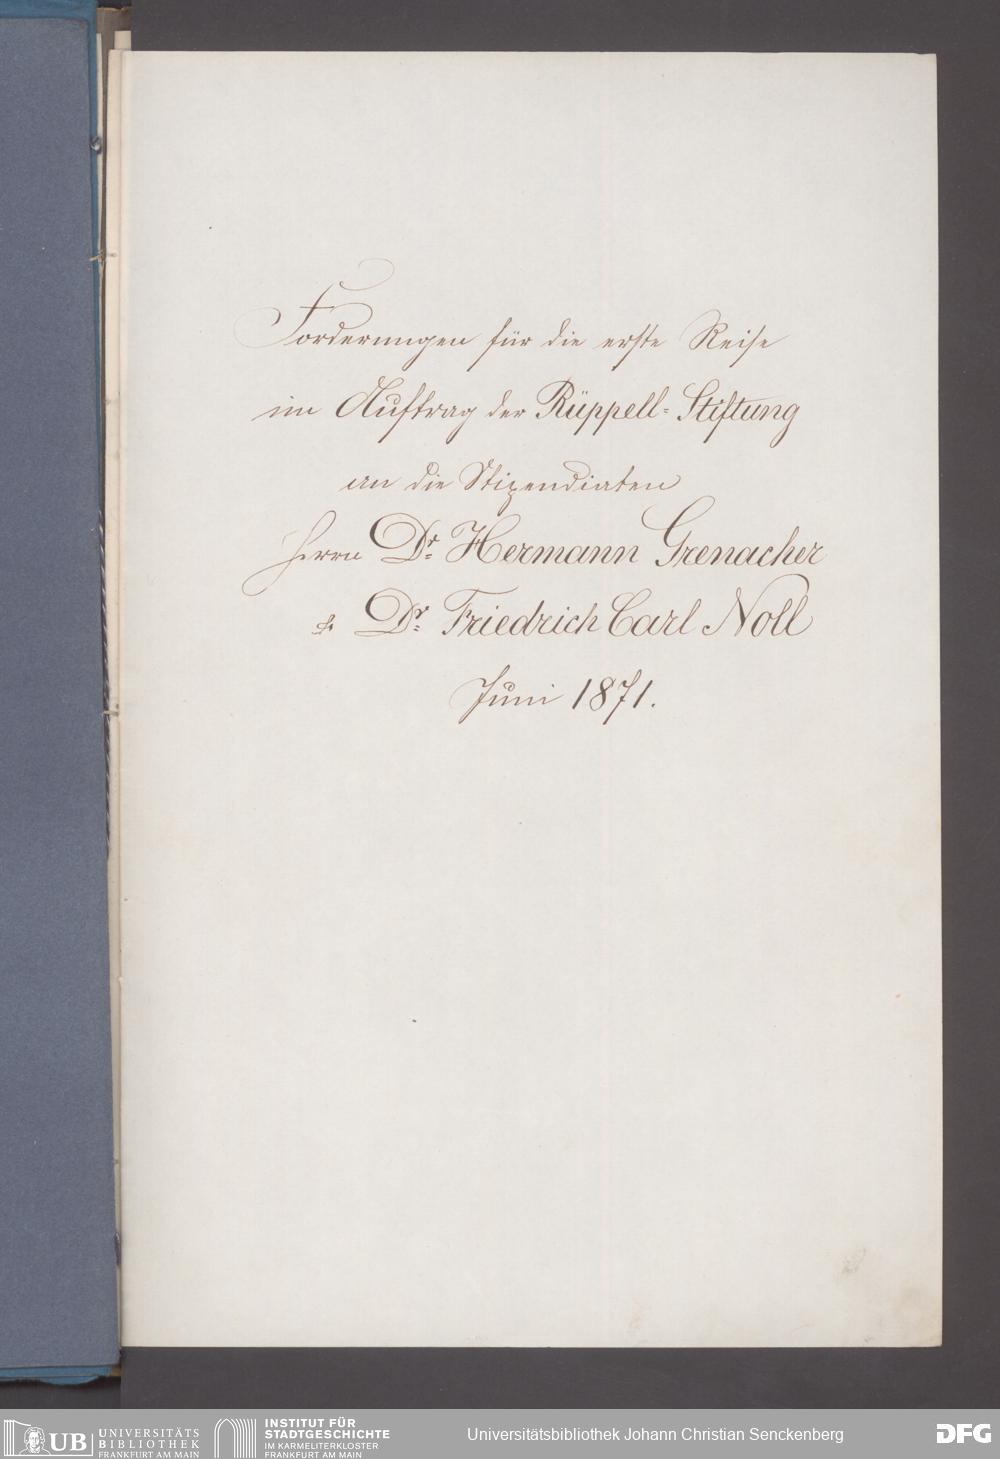 Forderungen für die erste Reise
im Auftrag der Rüppell-Stiftung
an die Stipendiaten
Herrn Dr. Hermann Grenacher
& Dr. Friedrich Carl Noll
Juni 1871.
UB UNIVERSITÄTS
BIBLIOTHEK
FRANKFURT AM MAIN
INSTITUT FÜR
STADTGESCHICHTE
IM KARMELITERKLOSTER
FRANKFURT AM MAIN
Universitätsbibliothek Johann Christian Senckenberg
DFG